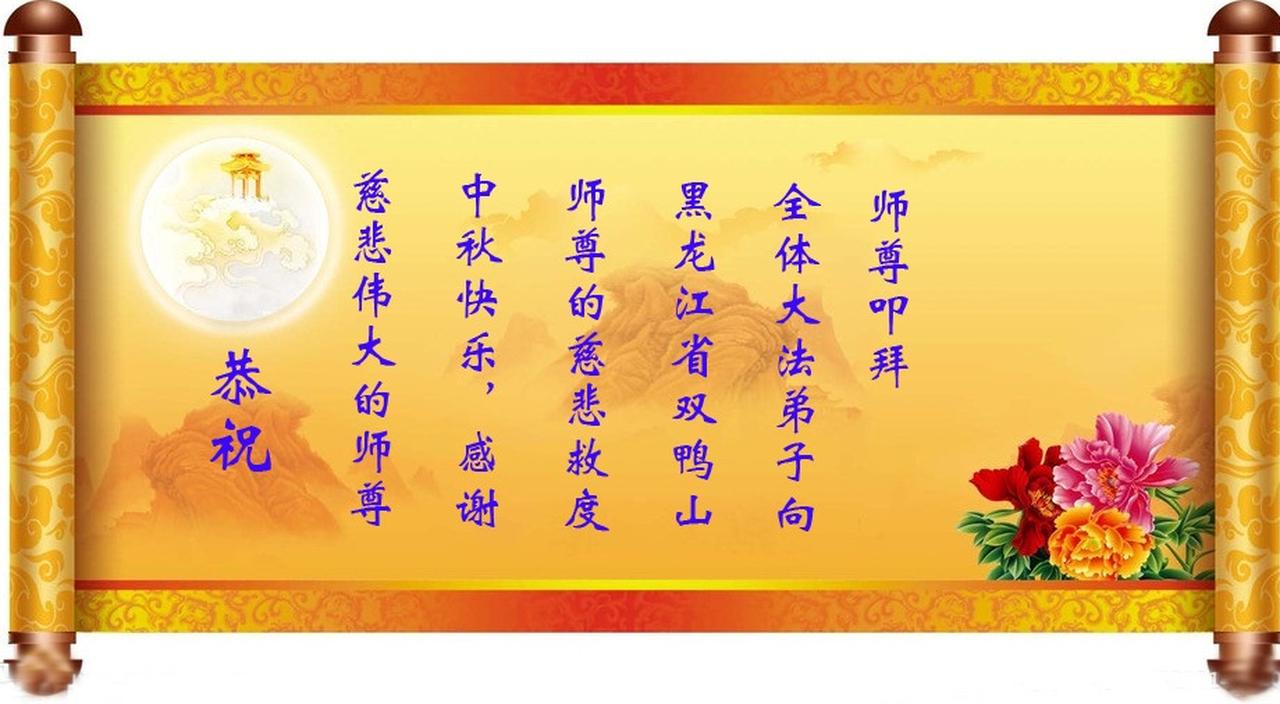 恭祝
慈悲伟大的师尊
中秋快乐，感谢
师尊的慈悲救度
黑龙江省双鸭山
全体大法弟子向
师尊叩拜